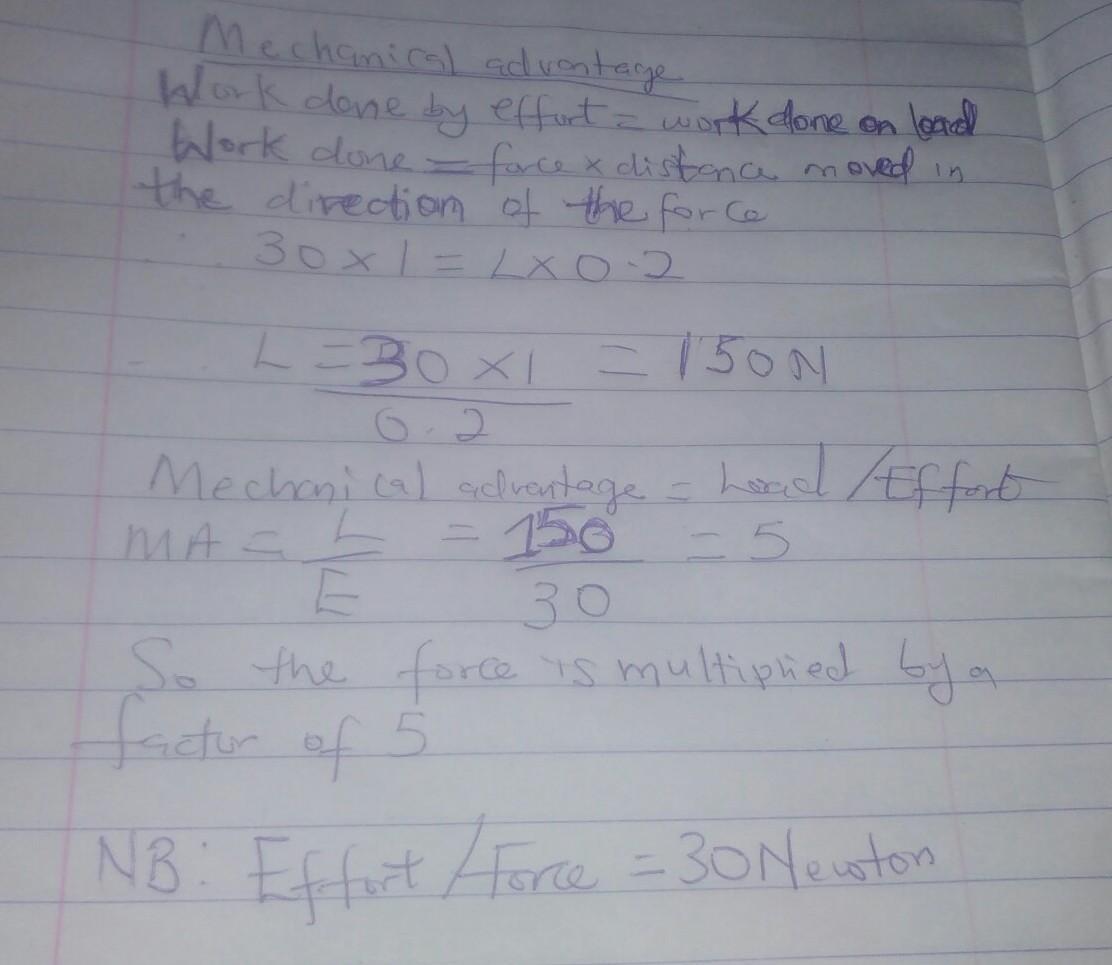 Mechanical advantage
Work done by effort = work done on load
Work done = force x distance moved in
the direction of the force
30 x 1 = L x 0.2
L = 30 x 1 = 150N
0.2
Mechanical advantage = Load / Effort
MA = L = 150 = 5
E 30
So the force is multiplied by a
factor of 5
NB: Effort / Force = 30 Newton